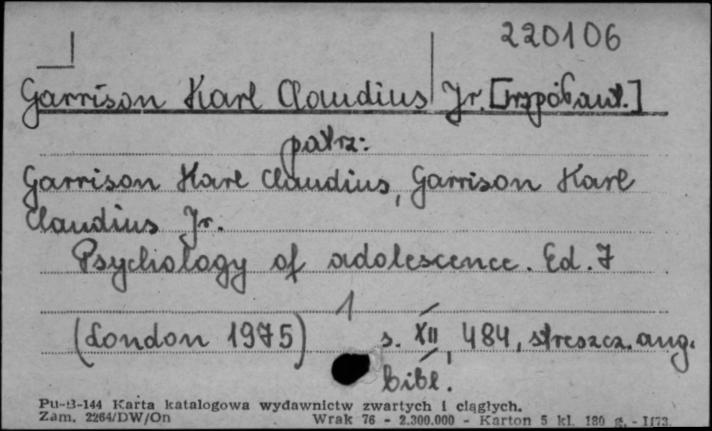 220106
Garrison Karl Claudius Jr. [współaut.]
patrz:
Garrison Karl Claudius, Garrison Karl
Claudius Jr.
Psychology of adolescence. Ed. 7
1
(London 1975) s. XII, 484, streszcz. ang.
bibl.
Pu-B-144 Karta katalogowa wydawnictw zwartych i ciągłych.
Zam. 2264/DW/On Wrak 76 - 2.300.000 - Karton 5 kl. 180 g. - 1173